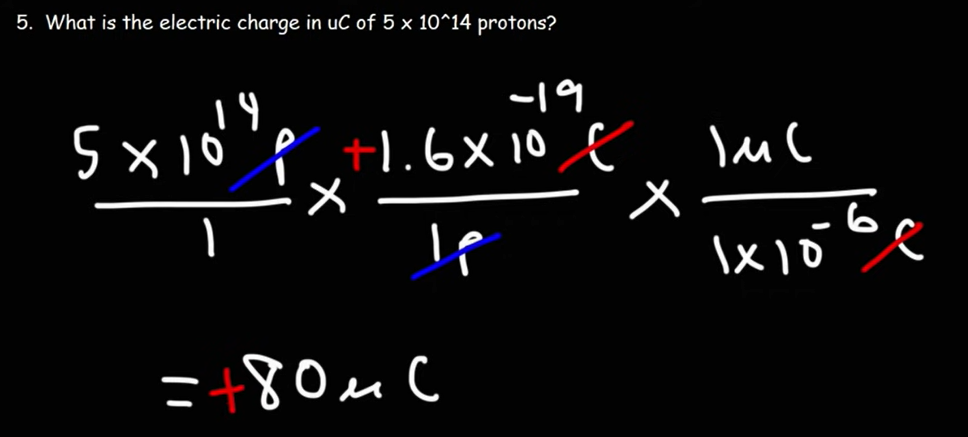 5. What is the electric charge in uC of 5 x 10^14 protons?
5 x 10^14 p / 1 x +1.6 x 10^-19 C / 1p x 1μC / 1x10^-6 C
= +80μC